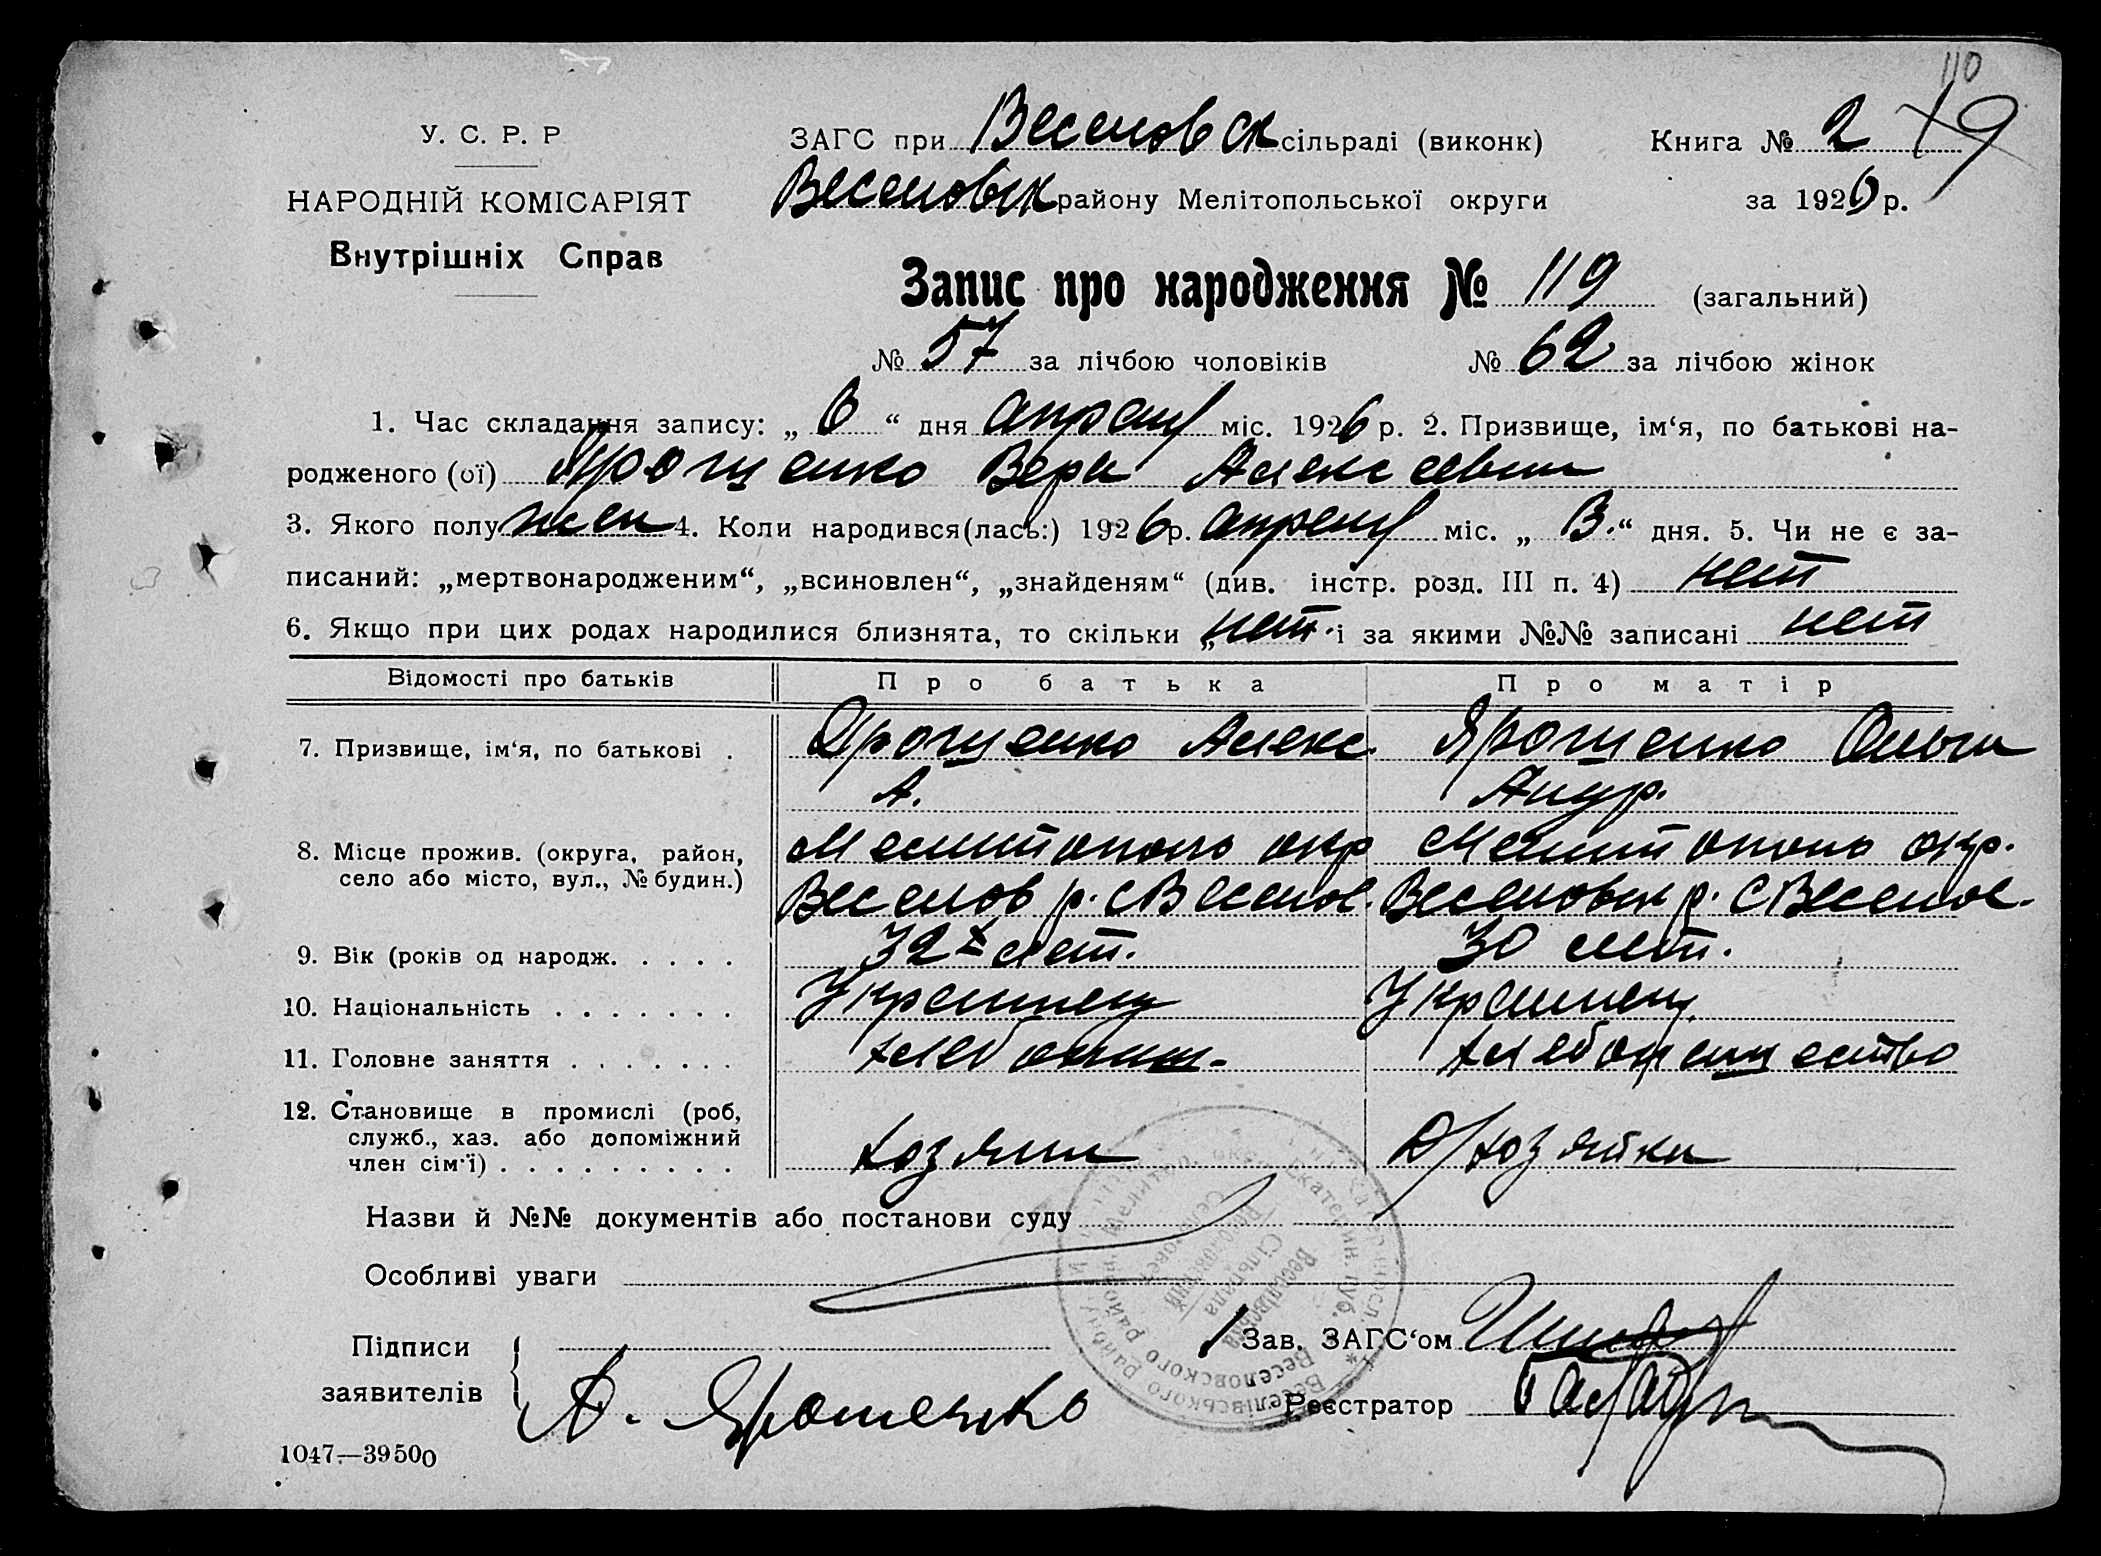 110
У. С. Р. Р
НАРОДНІЙ КОМІСАРІЯТ
Внутрішніх Справ
ЗАГС при Веселовск сільраді (виконк) Книга № 2 79
Веселовск району Мелітопольської округи за 1926 р.
Запис про народження № 119 (загальний)
№ 57 за лічбою чоловіків № 62 за лічбою жінок
1. Час складання запису: „ 6 “ дня апреля міс. 1926 р. 2. Призвище, ім‘я, по батькові на-
родженого (ої) Ярошенко Вера Алексеевна
3. Якого полу жен 4. Коли народився(лась:) 1926 р. апреля міс. „ 3. “ дня. 5. Чи не є за-
писаний: „мертвонародженим“, „всиновлен“, „знайденям“ (див. інстр. розд. III п. 4) нет
6. Якщо при цих родах народилися близнята, то скільки „ нет “ і за якими №№ записані нет
Відомості про батьків Про батька Про матір
7. Призвище, ім‘я, по батькові . Ярошенко Алекс. Ярошенко Ольга
А.
8. Місце прожив. (округа, район, Мелитополь окр Мелитополь окр.
село або місто, вул., № будин.) Веселов р. с Весело. Веселовск р. с Весело.
9. Вік (років од народж. . . . . 32 х лет. 30 лет.
10. Національність . . . . . . . Украинец Украинец
11. Головне заняття . . . . . . . хлебопаш. хлебопашество
12. Становище в промислі (роб,
служб., хаз. або допоміжний хозяин Д/хозяйка
член сім'ї) . . . . . . . . .
Назви й №№ документів або постанови суду
Особливі уваги
Підписи Зав. ЗАГС‘ом
заявителів А. Ярошенко Реєстратор
1047—39500
Веселівського району
Веселовского района Мелитоп. окр. Екатерин. губ.
Веселівська
Сільрада
Веселовский
Сельсовет